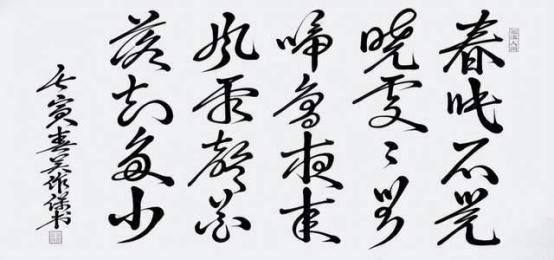 春眠不覺
曉處々聞
啼鳥夜來
風雨聲花
落知多少
壬寅春吴作书